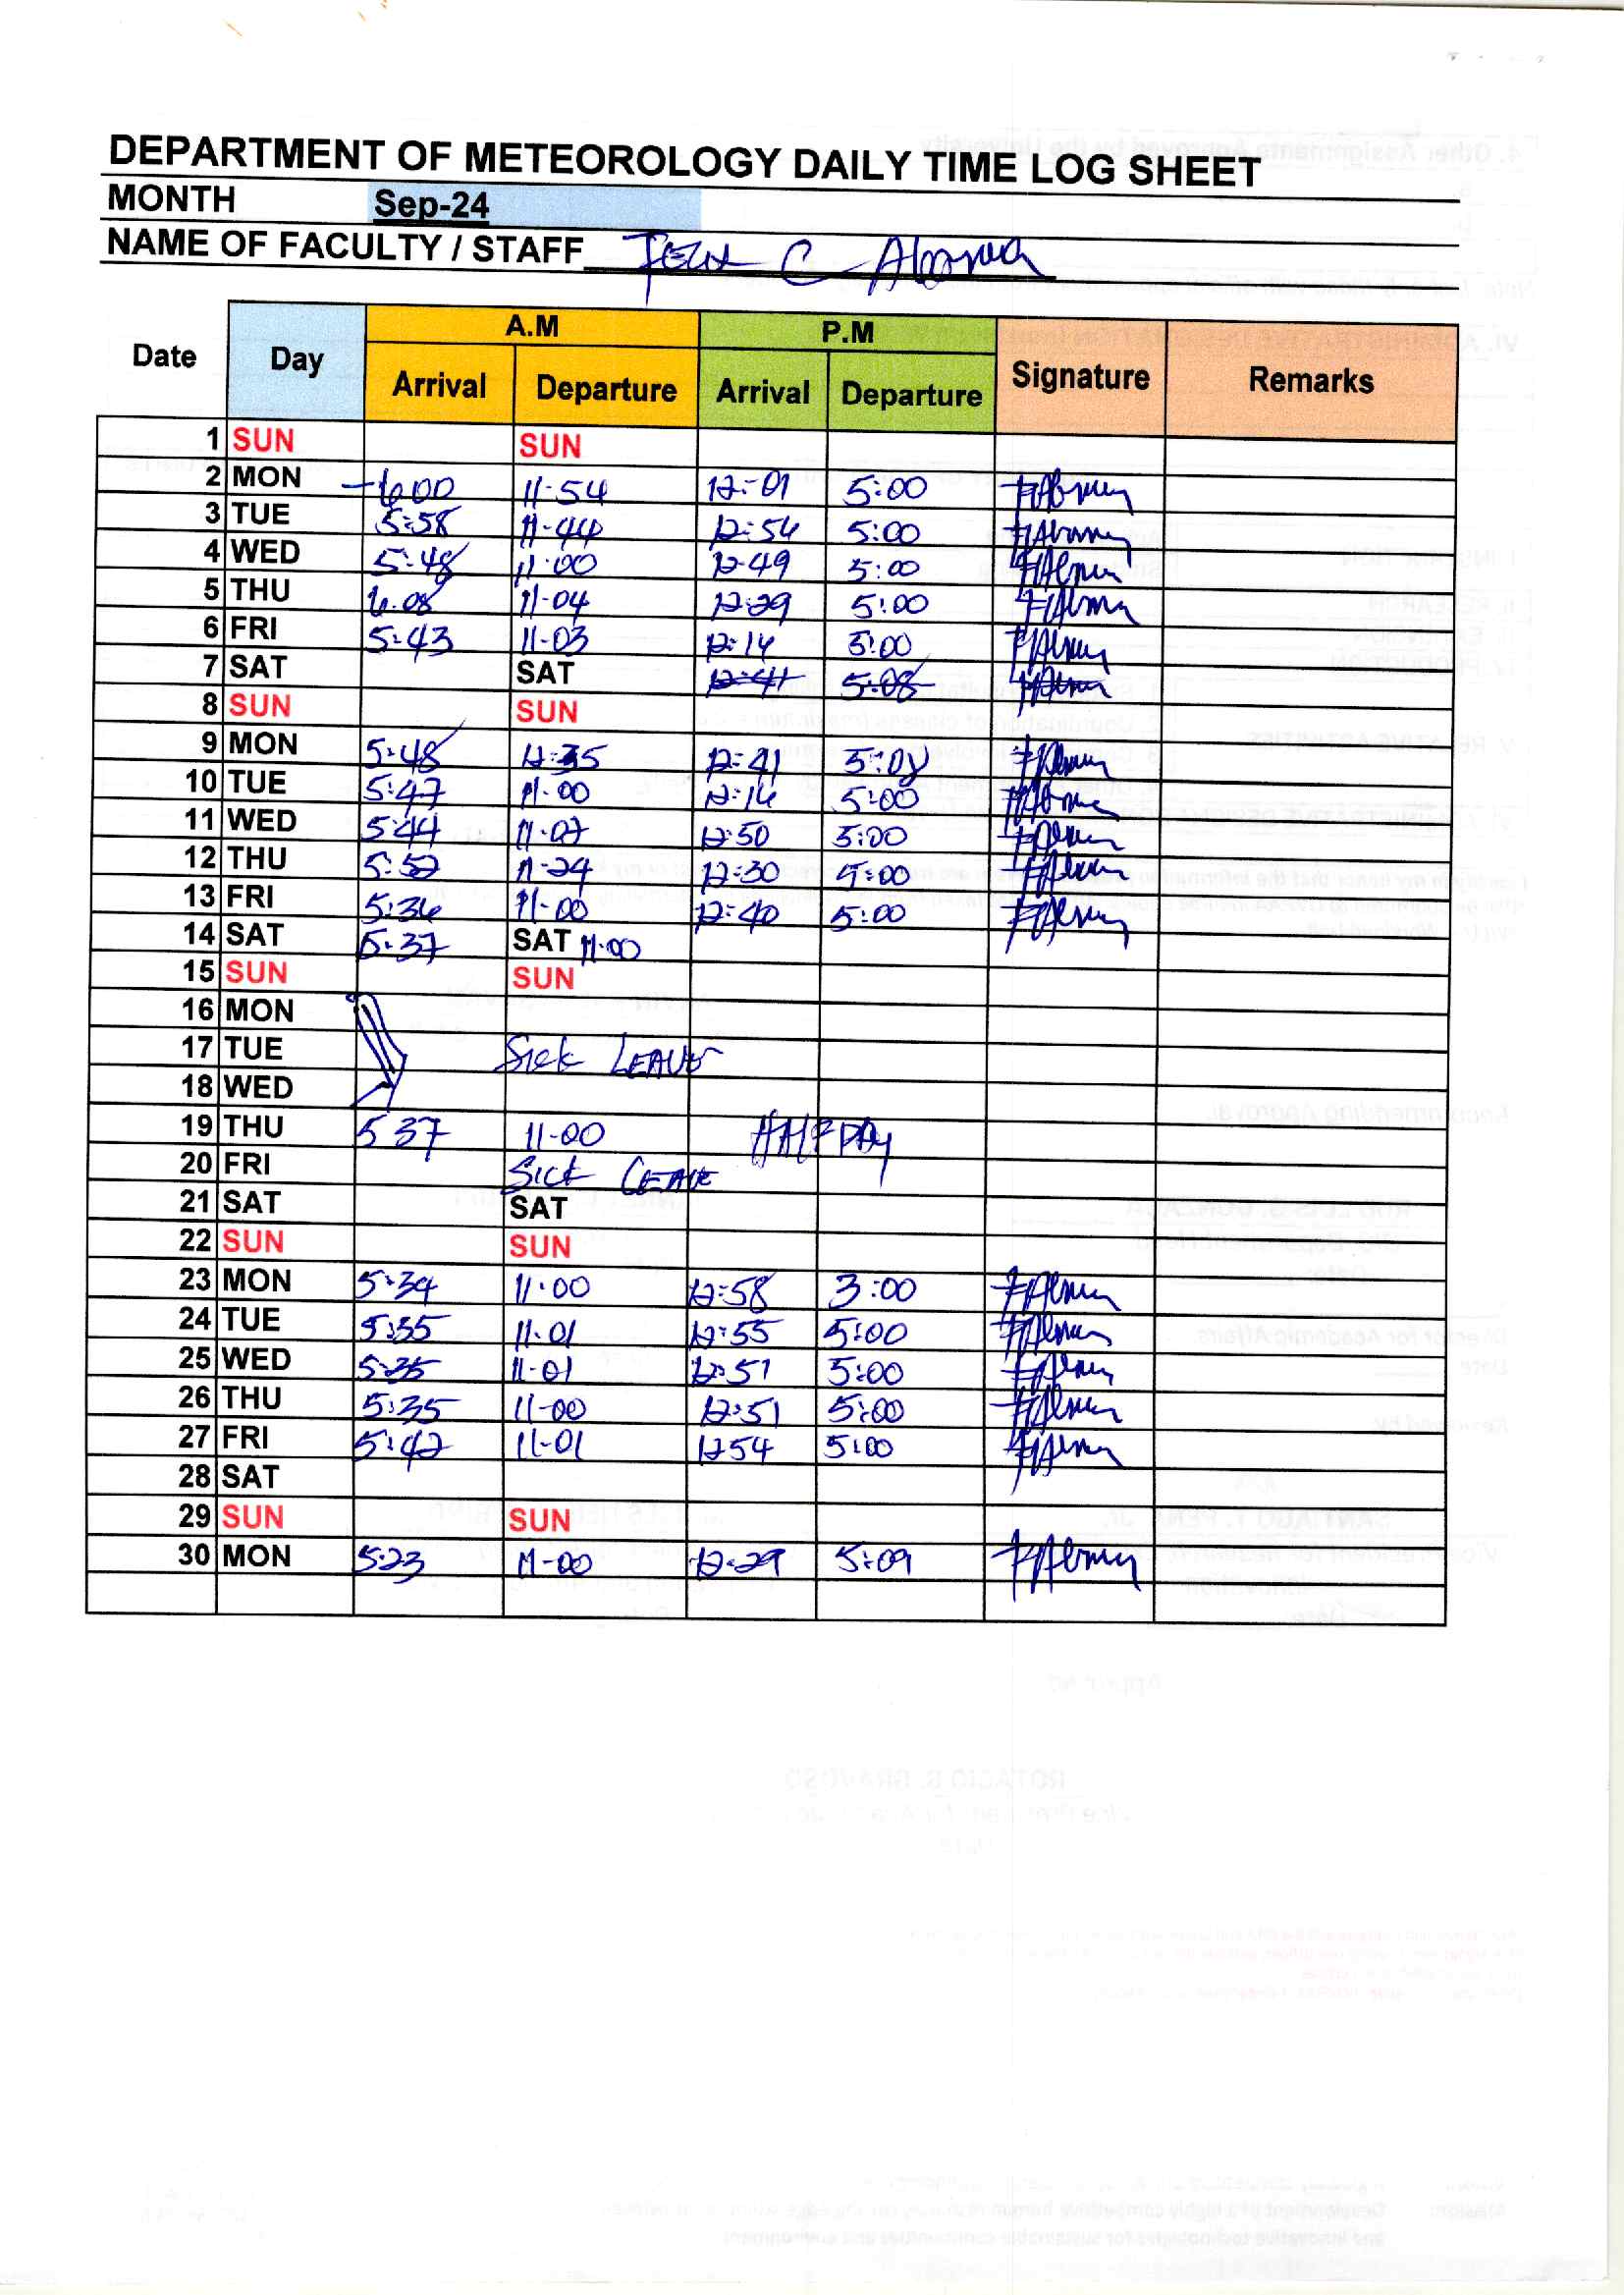 DEPARTMENT OF METEOROLOGY DAILY TIME LOG SHEET
MONTH Sep-24
NAME OF FACULTY / STAFF
Date Day A.M P.M Signature Remarks
Arrival Departure Arrival Departure
1 SUN SUN
2 MON 6:00 11-54 12:-01 5:00
3 TUE 5:58 11-44 12:54 5:00
4 WED 5:48 11:00 12-49 5:00
5 THU 6.08 11-04 12:29 5:00
6 FRI 5:43 11-03 12:14 5:00
7 SAT SAT 12:41 5:08
8 SUN SUN
9 MON 5:48 12:35 12:41 5:08
10 TUE 5:47 11:00 12:14 5:00
11 WED 5:44 11:07 12:50 5:00
12 THU 5:52 11-24 12:30 5:00
13 FRI 5:36 11-00 12:40 5:00
14 SAT 5:37 SAT 11:00
15 SUN SUN
16 MON
17 TUE Sick LEAVE
18 WED
19 THU 5 37 11-00 HALF DAY
20 FRI Sick LEAVE
21 SAT SAT
22 SUN SUN
23 MON 5:34 11:00 12:58 3:00
24 TUE 5:35 11.01 12:55 5:00
25 WED 5:35 11-01 12:51 5:00
26 THU 5:35 11-00 12:51 5:00
27 FRI 5:42 11-01 1254 5:00
28 SAT
29 SUN SUN
30 MON 5:23 11-00 12-29 5:09